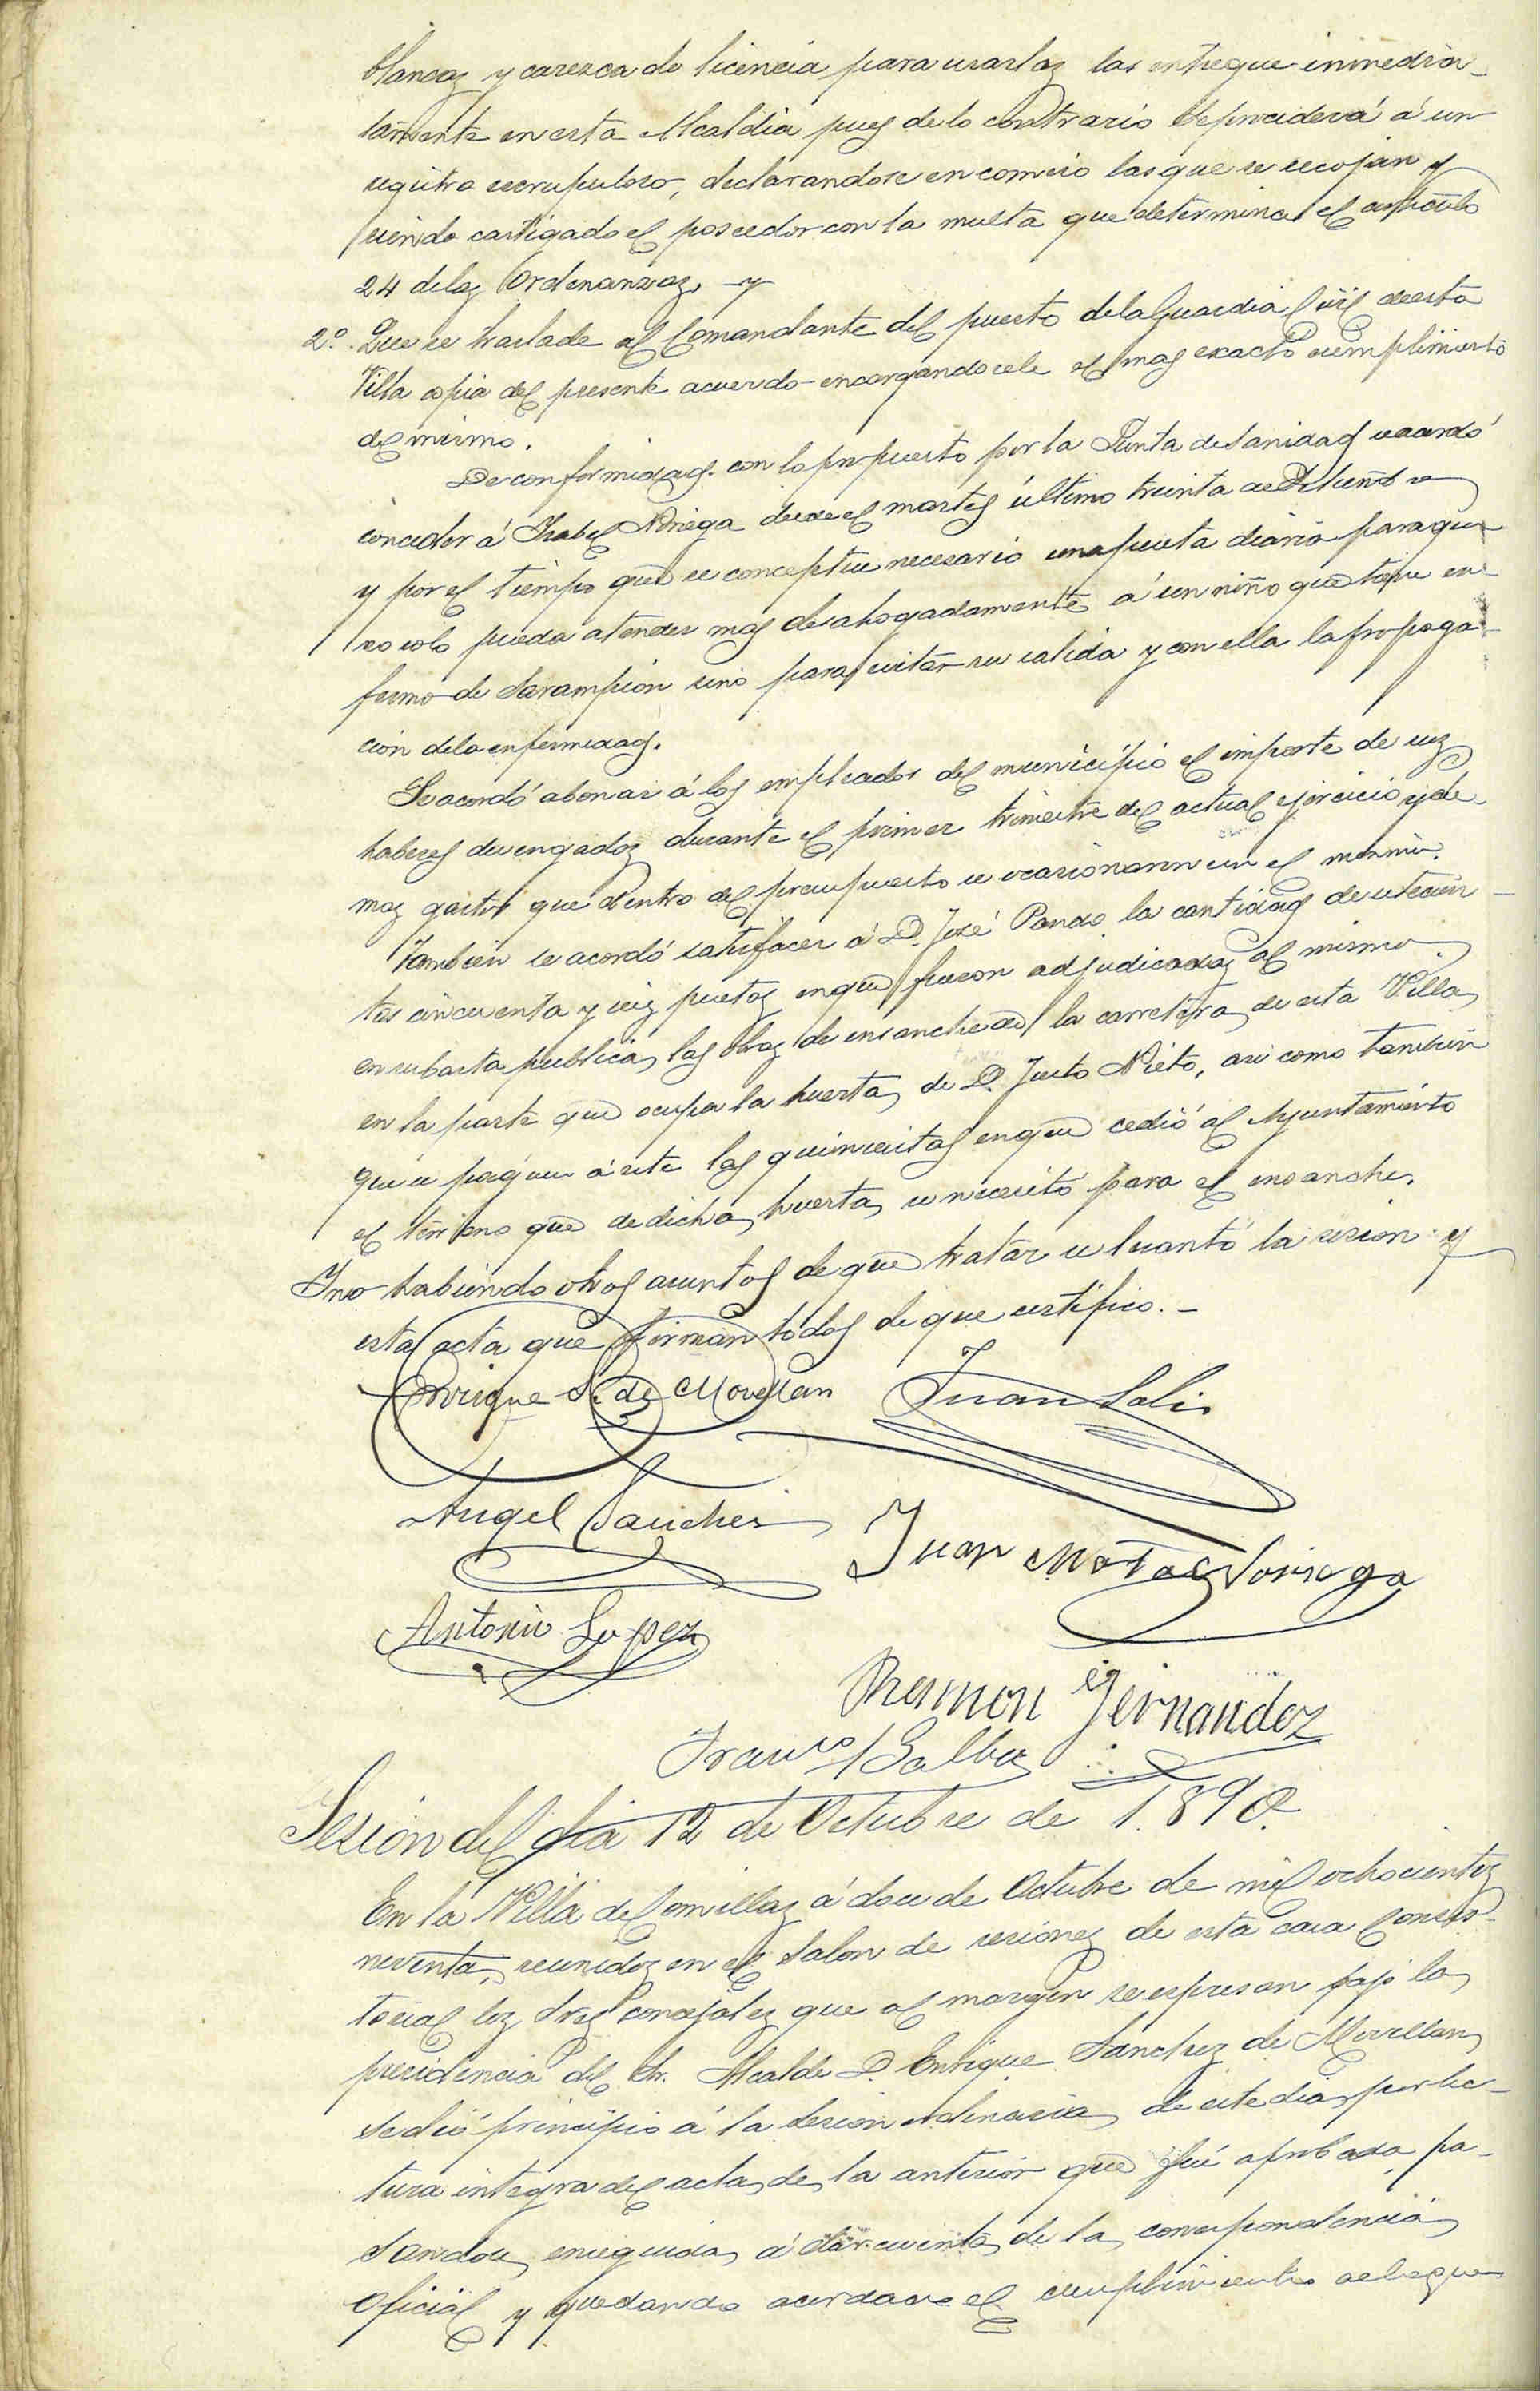 blancas y carezca de licencia para usarlas las entregue inmedia-
tamente en esta Alcaldia pues de lo contrario se procederá á un
registro escrupuloso, declarandose en comiso las que se recojan y
siendo castigado el poseedor con la multa que determina el articulo
24 de las Ordenanzas, y
2º. Que se traslade al Comandante del puesto de la Guardia Civil de esta
Villa copia del presente acuerdo encargandosele el mas exacto cumplimiento
del mismo.
De conformidad con lo propuesto por la Junta de Sanidad se acordó
conceder á Isabel Noriega desde el martes último treinta de
y por el tiempo que se conceptue necesario una peseta diaria para que
no solo pueda atender mas desahogadamente á un niño que tiene en-
fermo de Sarampion sino para evitar su salida y con ella la propaga-
cion de la enfermedad.
Se acordó abonar á los empleados del municipio el importe de sus
haberes devengados durante el primer trimestre del actual ejercicio y de-
mas gastos que dentro del presupuesto se ocasionaron en el mismo.
Tambien se acordó satisfacer á D. José Pando la cantidad de setecien-
tas cincuenta y seis pesetas en que fueron adjudicadas al mismo
en subasta publica las obras de ensanche de la carretera de esta Villa
en la parte que ocupa la huerta de D. Justo Nieto, asi como tambien
que se paguen á este las quinientas en que cedió al Ayuntamiento
el terreno que de dicha huerta se necesitó para el ensanche.
Y no habiendo otros asuntos de que tratar se levantó la sesion y
esta acta que firman todos de que certifico.-
Enrique S. de Movellan Juan Solis
Angel Sanches
Juan Mata Noriega
Antonio Lopez
Ramon Fernandez
Franco Balbas
Sesion del dia 12 de Octubre de 1.890.
En la Villa de Comillas á doce de Octubre de mil ochocientos
noventa, reunidos en el salon de sesiones de esta casa Consis-
torial los Sres Concejales que al margen se espresan bajo la
presidencia del Sr. Alcalde D. Enrique Sanchez de Movellan,
se dió principio á la sesion ordinaria de este dia por lec-
tura integra del acta de la anterior que fué aprobada pa-
sandose enseguida á dar cuenta de la correspondencia
oficial y quedando acordado el cumplimiento de lo que